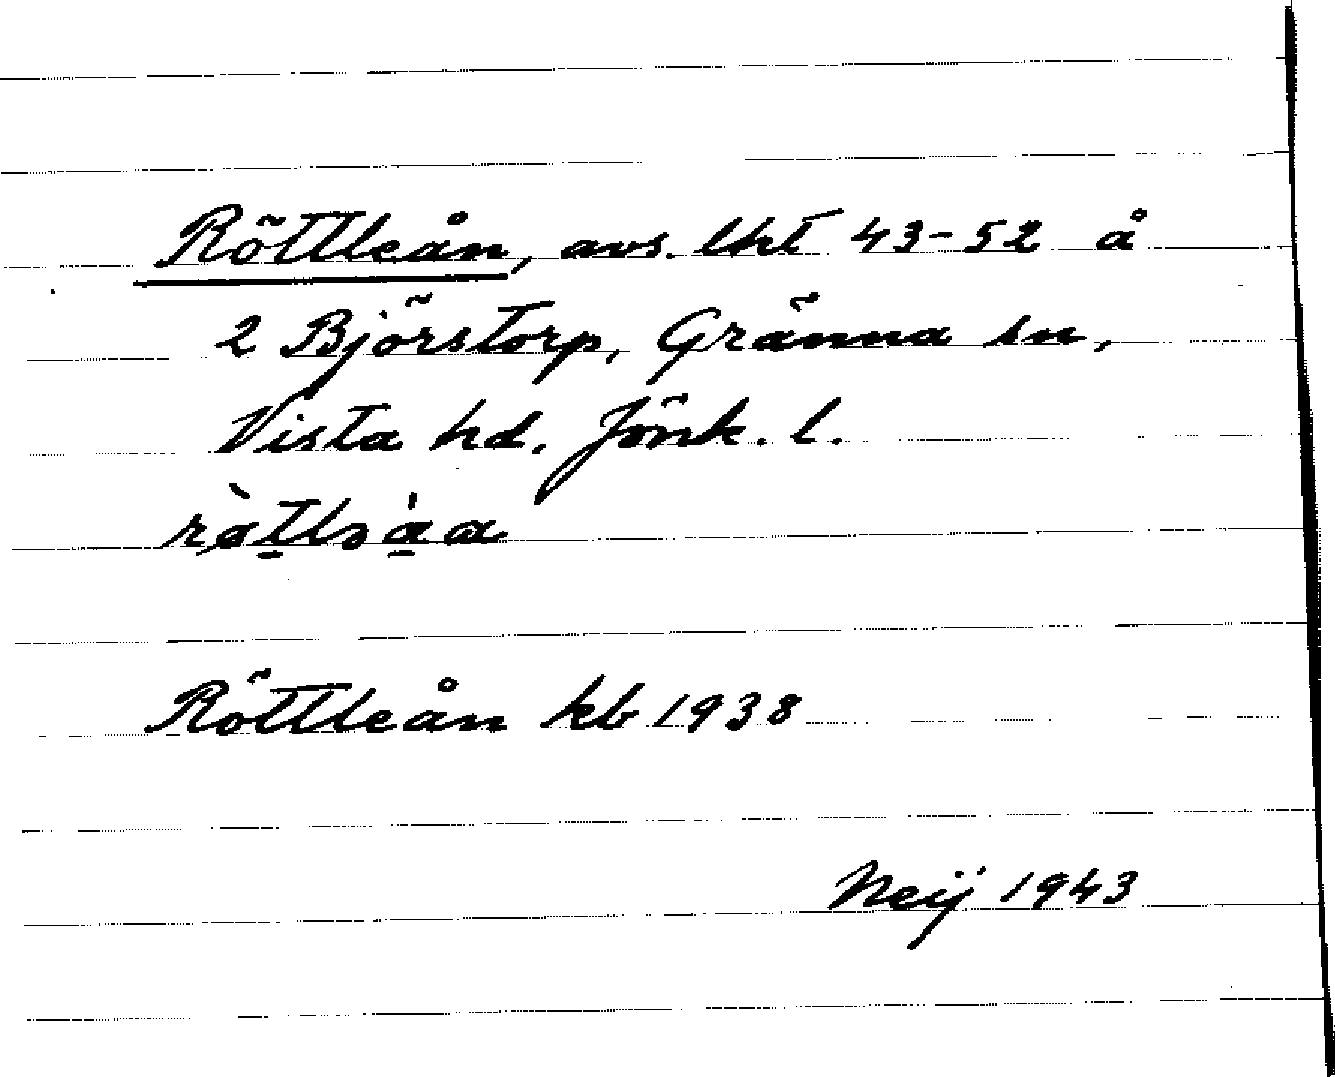 Röttleån, avs. lht 43-52 å
2 Björstorp, Gränna sn,
Vista hd. Jönk. l.
Röttleån kb 1938
Neij 1943